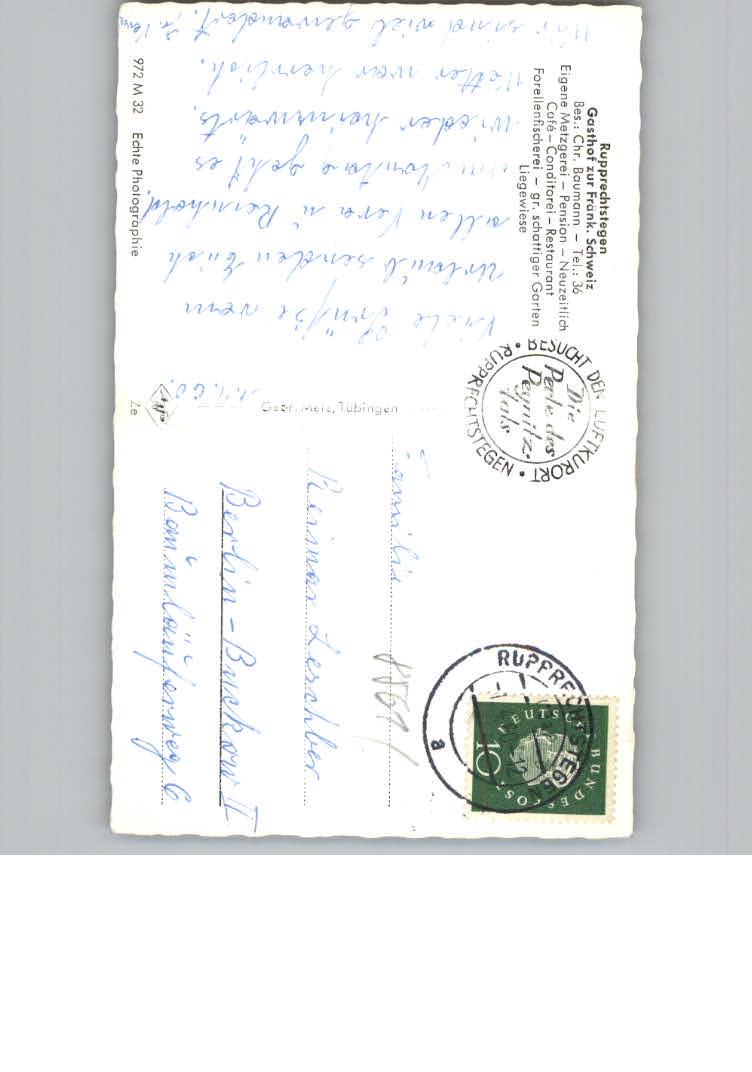 Rupprechtstegen
Gasthof zur Fränk. Schweiz
Bes.: Chr. Baumann – Tel.: 36
Eigene Metzgerei – Pension – Neuzeitlich
Café – Conditorei – Restaurant
Forellenfischerei – gr. schattiger Garten
Liegewiese
Viele Grüße vom
Urlaub senden Euch
allen Vera u. Reinhold.
Am Montag geht es
wieder heimwärts.
Wetter war herrlich.
Wir sind viel gewandert.
972 M 32 Echte Photographie
Gebr. Metz, Tübingen
Ze
BESUCHT DEN LUFTKURORT • RUPPRECHTSTEGEN •
Die
Perle des
Pegnitz-
tals
RUPPRECHTSTEGEN
a
DEUTSCHE BUNDESPOST
10
Familie
Reimar Leschber
Berlin-Buckow II
Baumläuferweg 6